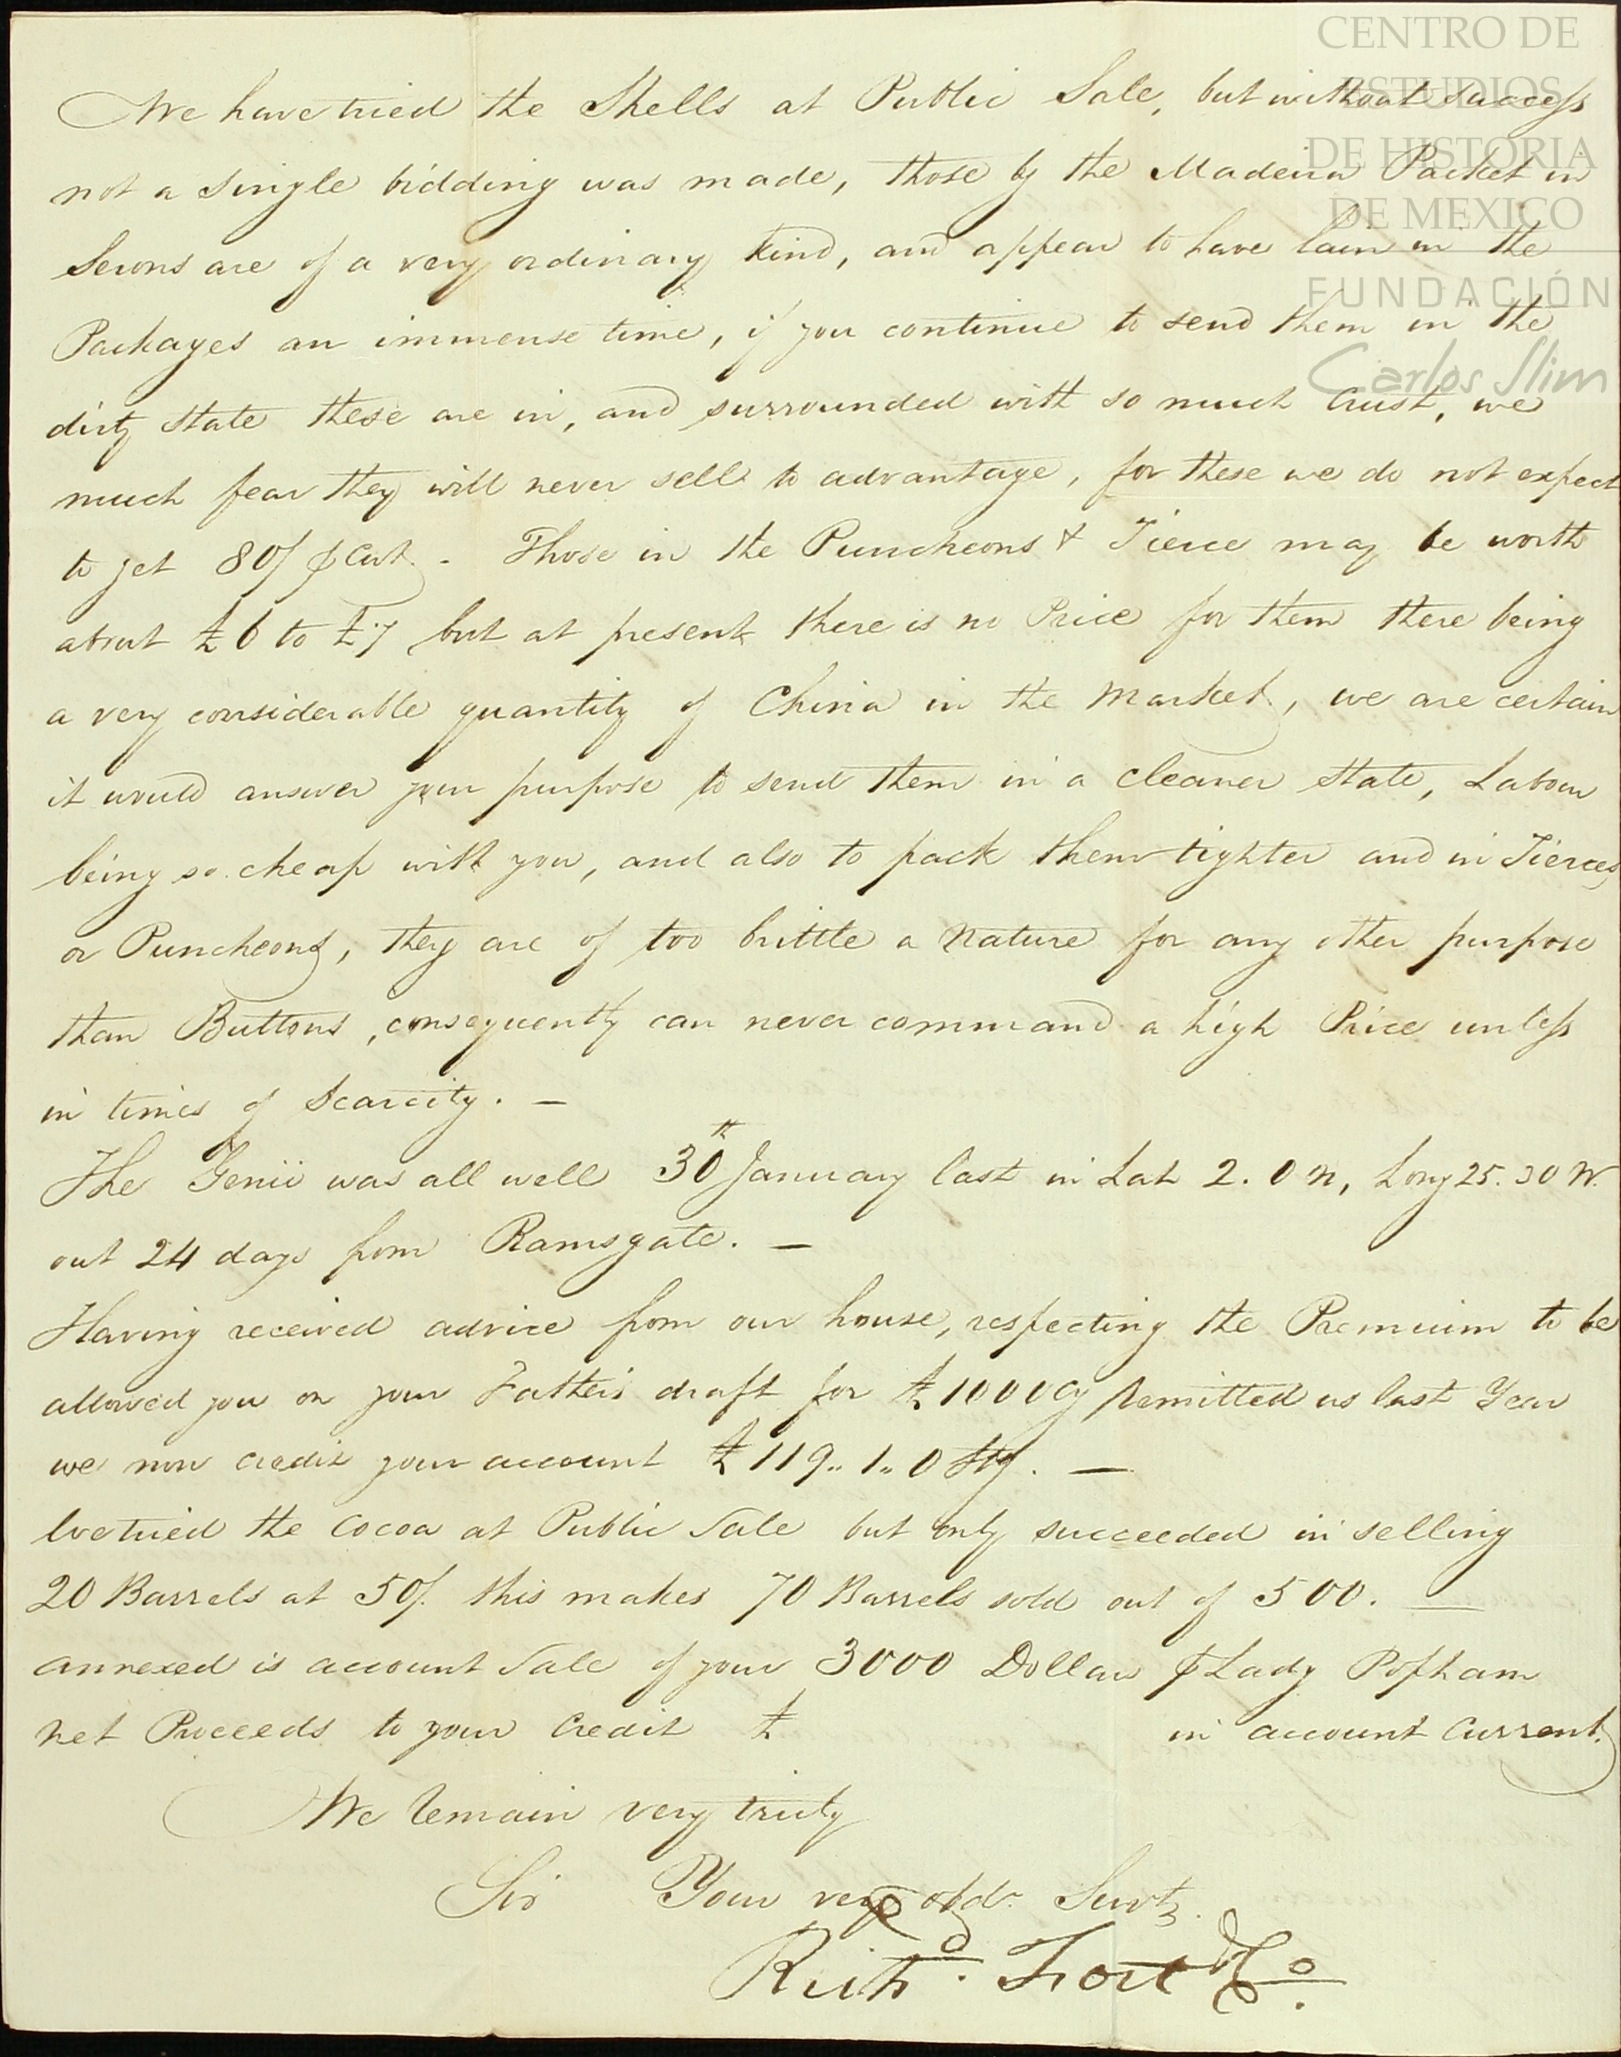 CENTRO DE
ESTUDIOS
DE HISTORIA
DE MEXICO
FUNDACIÓN
Carlos Slim
We have tried the Shells at Public Sale, but without success
not a single bidding was made, those by the Madeira Packet in
Serons are of a very ordinary kind, and appear to have lain in the
Packages an immense time, if you continue to send them in the
dirty state these are in, and surrounded with so much Crust, we
much fear they will never sell to advantage, for these we do not expect
to get 80/ ⅌ Cwt. - Those in the Puncheons & Tierce may be worth
about £6 to £7 but at present there is no Price for them there being
a very considerable quantity of China in the Market, we are certain
it would answer your purpose to send them in a cleaner state, Labour
being so cheap with you, and also to pack them tighter and in Tierces
or Puncheons, they are of too brittle a Nature for any other purpose
than Buttons, consequently can never command a high Price unless
in times of Scarcity. —
The Genii was all well 30th January last in Lat 2.0 N, Long 25.30 W.
out 24 days from Ramsgate. —
Having received advice from our house, respecting the Premium to be
allowed you on your Father's draft for £1000 remitted us last Year
we now credit your account £119.. 1.. 0 Stg. —
We tried the Cocoa at Public Sale but only succeeded in selling
20 Barrels at 50/. this makes 70 Barrels sold out of 500. —
annexed is account Sale of your 3000 Dollars ⅌ Lady Popham
net Proceeds to your Credit £ in account Current.
We remain very truly
Sir Your very obdt. Servts.
Richd. Fort & Co.